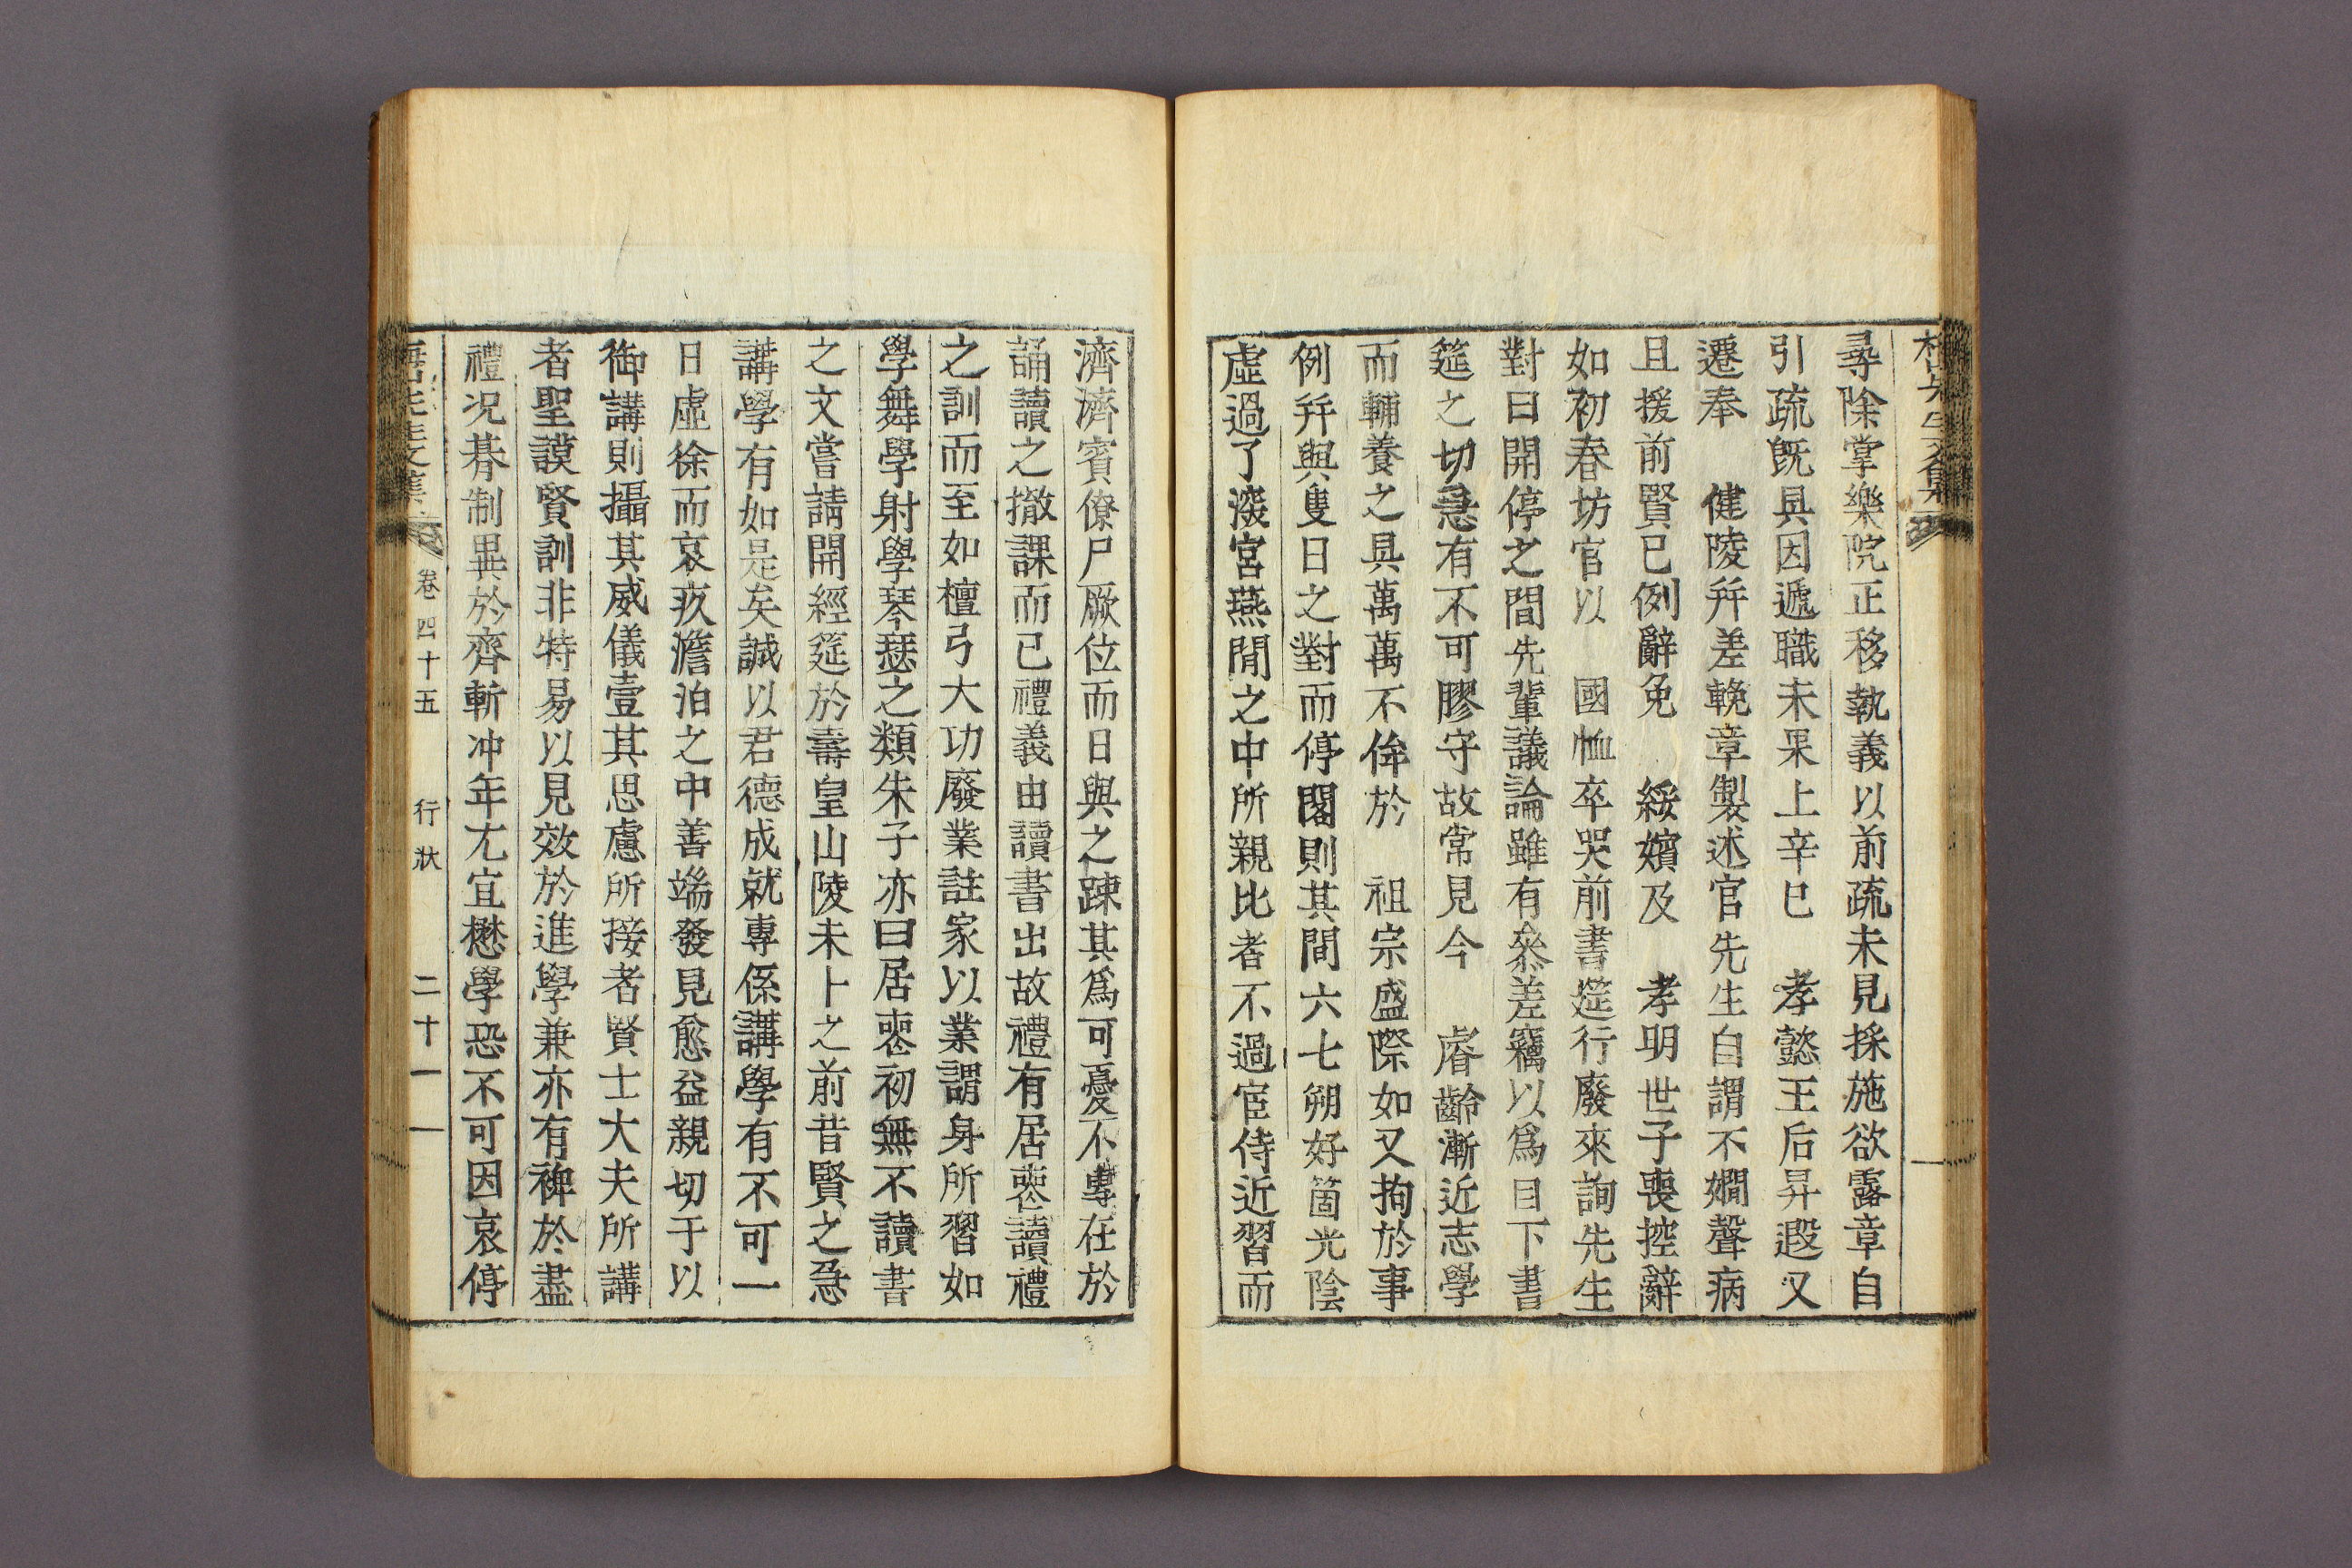 尋除掌樂院正移執義以前疏未見採施欲露章自
引疏旣具因遞職未果上辛巳 孝懿王后昇遐又
遷奉 健陵幷差輓章製述官先生自謂不嫺聲病
且援前賢已例辭免 綏嬪及 孝明世子喪控辭
如初春坊官以 國恤卒哭前書筵行廢來詢先生
對曰開停之間先輩議論雖有叅差竊以爲目下書
筵之切急有不可膠守故常見今 睿齡漸近志學
而輔養之具萬萬不侔於 祖宗盛際如又拘於事
例幷與隻日之對而停閣則其間六七朔好箇光陰
虛過了深宮燕閒之中所親比者不過宦侍近習而
濟濟賓僚尸厥位而日與之踈其爲可憂不專在於
誦讀之撤課而已禮義由讀書出故禮有居喪讀禮
之訓而至如檀弓大功廢業註家以業謂身所習如
學舞學射學琴瑟之類朱子亦曰居喪初無不讀書
之文嘗請開經筵於壽皇山陵未卜之前昔賢之急
講學有如是矣誠以君德成就專係講學有不可一
日虛徐而哀疚澹泊之中善端發見愈益親切于以
御講則攝其威儀壹其思慮所接者賢士大夫所講
者聖謨賢訓非特易以見效於進學兼亦有裨於盡
禮况朞制異於齊斬冲年尤宜懋學恐不可因哀停
先生文集 卷四十五 行狀 二十一